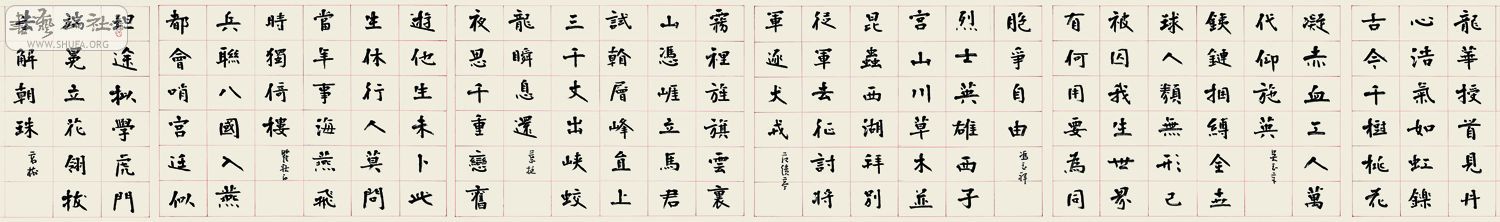 龍華授首見丹
心浩氣如虹鑠
古今千樹桃花
凝赤血工人萬
代仰施英
吳玉章
銕鏈捆縛全
球人類無形已
被囚我生世界
有何用要為同
胞爭自由
馮玉祥
烈士英雄西子
宮山川草木並
昆蟲西湖拜別
從軍去征討將
軍逐犬戎
霧裡旌旗雲裏
山憑崕立馬君
試翰層峰直上
三千丈出峽蛟
龍瞬息還
夜思千重戀舊
遊他生未卜此
生休行人莫問
當年事海燕飛
時獨倚樓
兵聯八國入燕
都會哨宮廷似
途學虎門
端冕立花翎拔
解朝珠
社
WWW.SHUFA.ORG